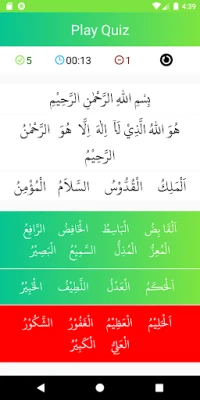 4:39
Play Quiz
5 00:13 1
بِسْمِ اللهِ الرَّحْمٰنِ الرَّحِيْمِ
هُوَ اللهُ الَّذِيْ لَآ اِلٰهَ اِلَّا هُوَ الرَّحْمٰنُ
الرَّحِيْمُ
اَلْمَلِكُ الْقُدُّوْسُ السَّلَامُ الْمُؤْمِنُ
اَلْقَابِضُ الْبَاسِطُ الْخَافِضُ الرَّافِعُ
الْمُعِزُّ الْمُذِلُّ السَّمِيْعُ الْبَصِيْرُ
اَلْحَكَمُ الْعَدْلُ اللَّطِيْفُ الْخَبِيْرُ
اَلْحَلِيْمُ الْعَظِيْمُ الْغَفُوْرُ الشَّكُوْرُ
الْعَلِيُّ الْكَبِيْرُ